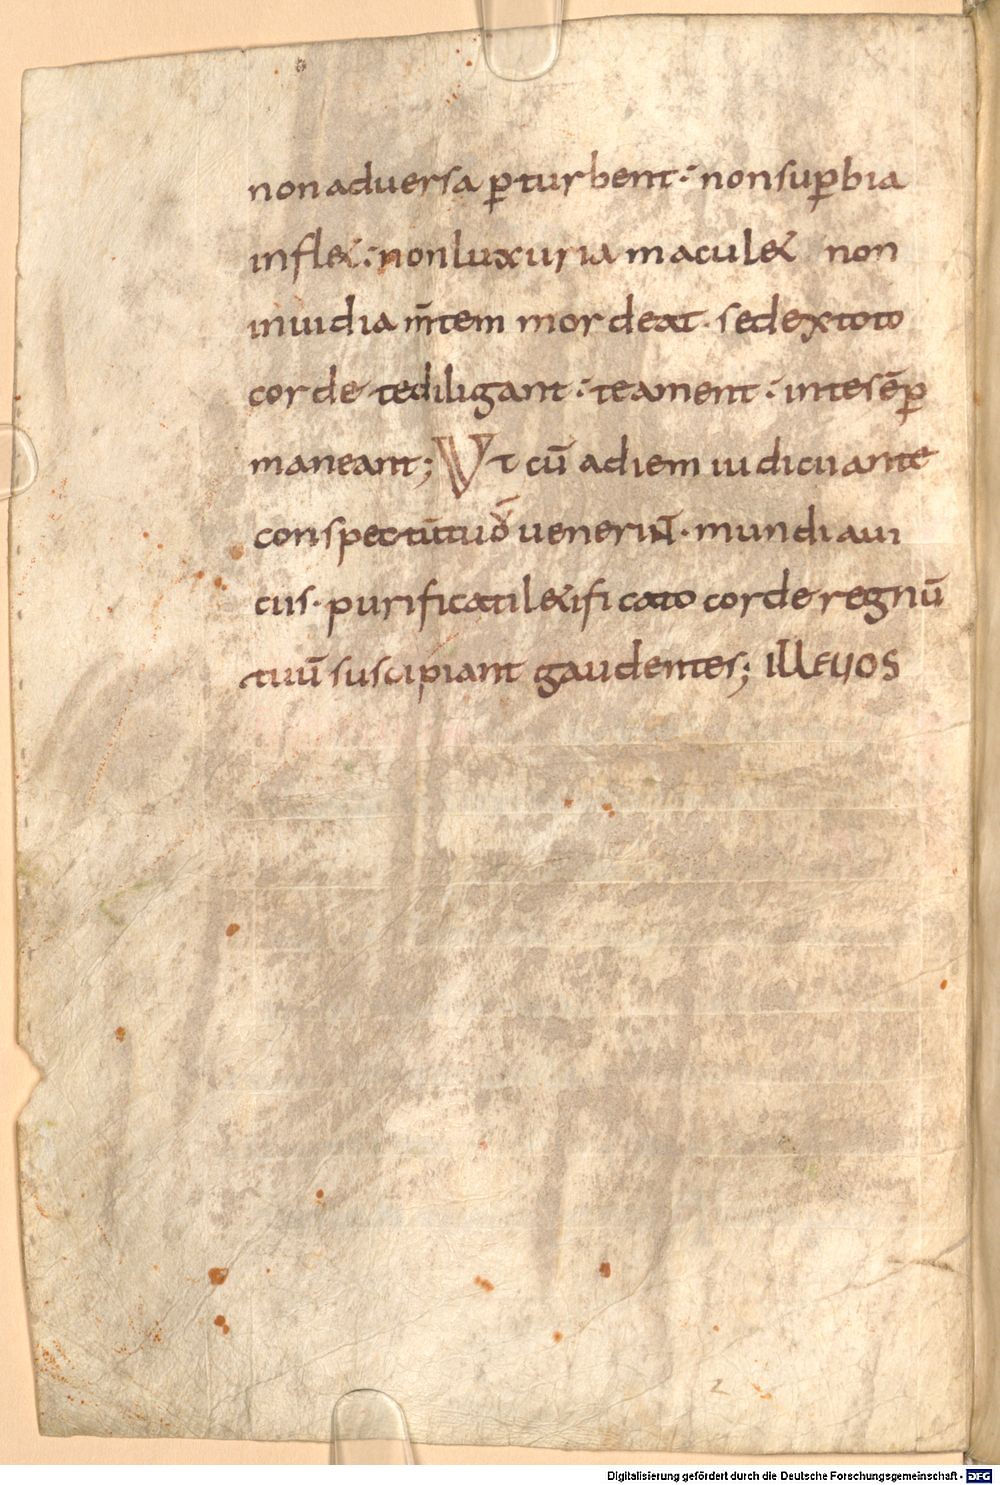 nonaduersa ꝑturbent · nonsuꝑbia
infl& · nonluxuria macul& non
inuidia m̄tem mordeat · sedextoto
corde tediligant · teament · intesēꝑ
maneant; Vt cū adiem iudicii ante
conspectūtuō ueneriN̄ · mundi aui
ciis · purificatil&ificato corde regnū
tuū suscipiant gaudentes; illeuos
Digitalisierung gefördert durch die Deutsche Forschungsgemeinschaft - DFG